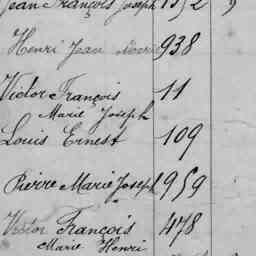 Jean François Joseph 1352 9
Henri Jean 938
Victor François 11
Marie Joseph
Louis Ernest 109
Pierre Marie Joseph 959
Victor François 478
Marie Henri